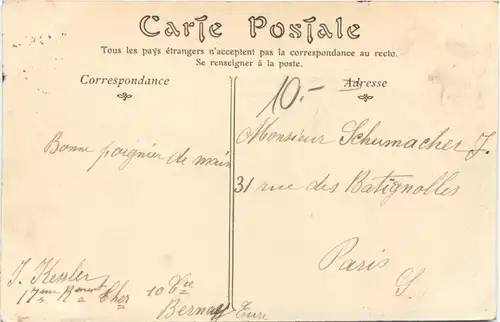 Carte Postale
Tous les pays étrangers n'acceptent pas la correspondance au recto.
Se renseigner à la poste.
Correspondance
Adresse
10.-
Monsieur Schumacher J.
Bonne poignier de main
31 rue des Batignolles
Paris
S.
J. Kessler
17ème
10 Cie
Bernay Eure